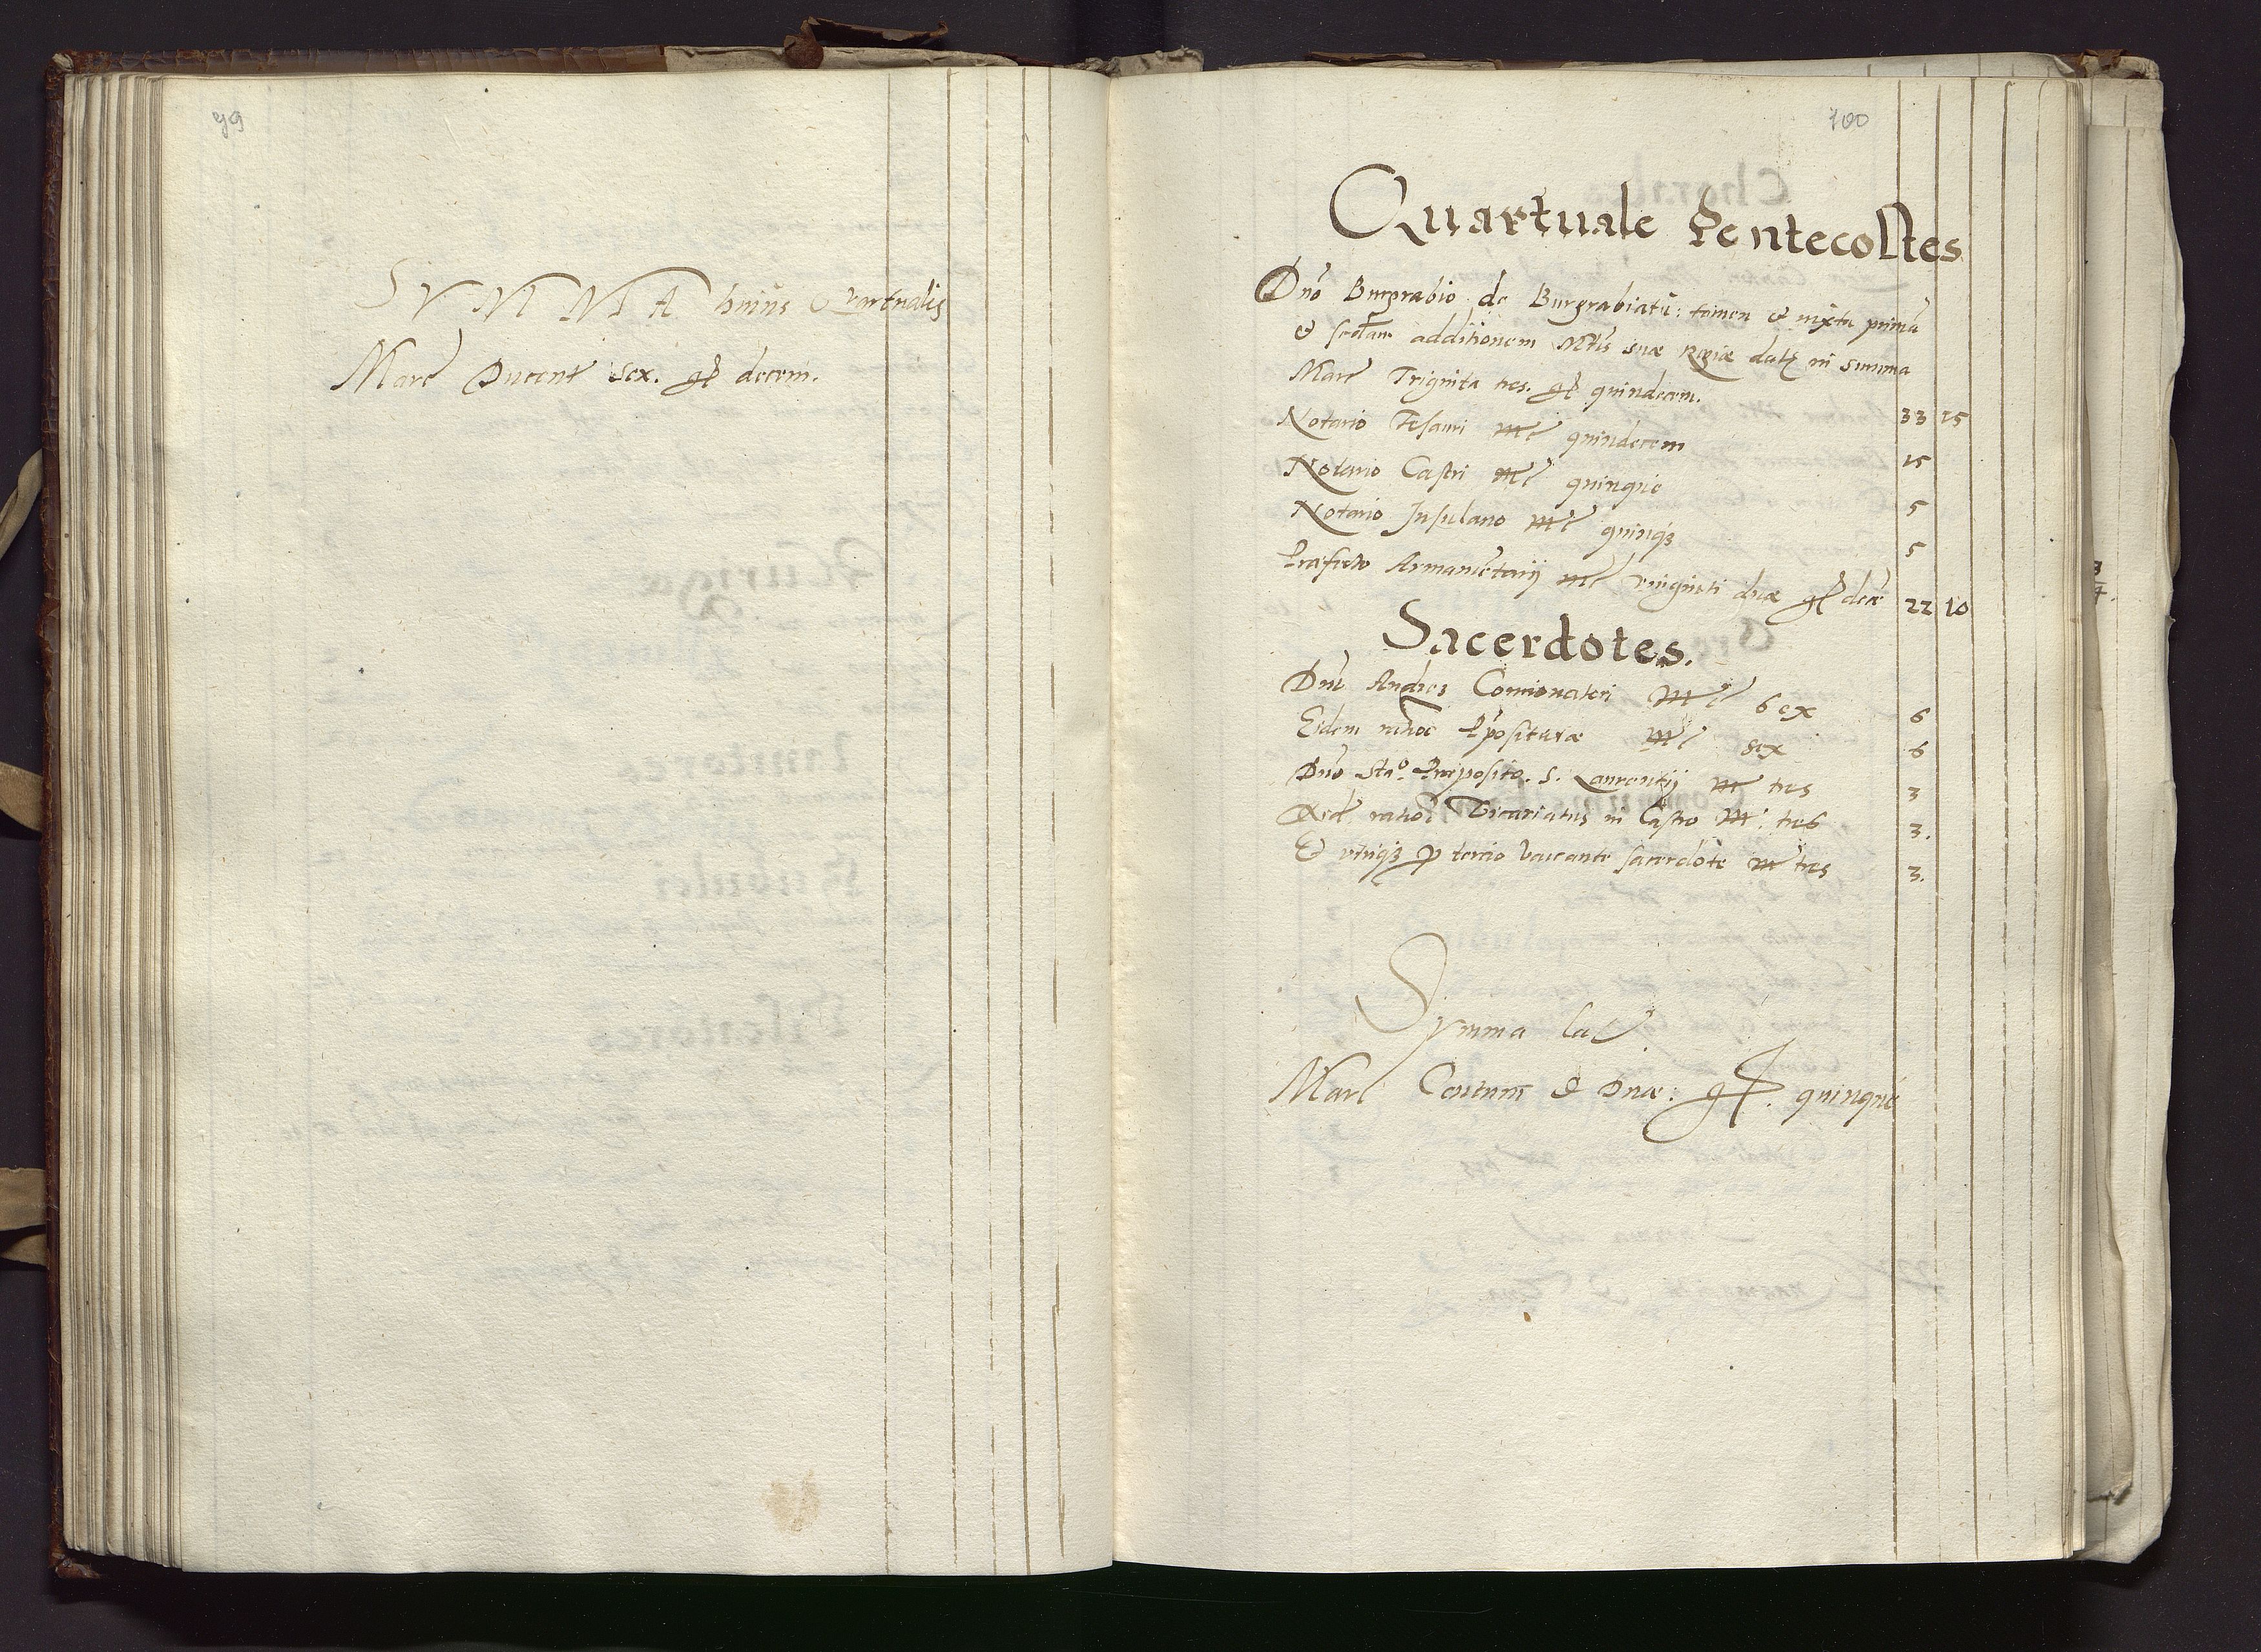 99
SVMMA huius Quartualis
Marc Ducent sex. gr decem.
100
Quartuale Pentecostes
Dno Burgrabio de Burgrabiatu: tamen et iuxta primā
et secdam additionem Mtis suae Regiae datę in summa
Marc Triginta tres. gr quindecem. 33 15
Notario Tesauri mc quindecem 15
Notario Castri mc quinque 5
Notario Insulano mc quinqȝ 5
Praefecto Armamētarij mc viginti duae gr decē 22 10
Sacerdotes.
Dno Andreę Concionatori Mc sex 6
Eidem ratioe Ppositurae mc sex 6
Dno Sta° Praeposito S. Laurentij m tres 3
ratioe Vicariatus in Castro m tres 3.
Et utriqȝ p tercio vacante sacerdote m tres 3.
Summa lac
Marc Centum et Duae: gr. quinque